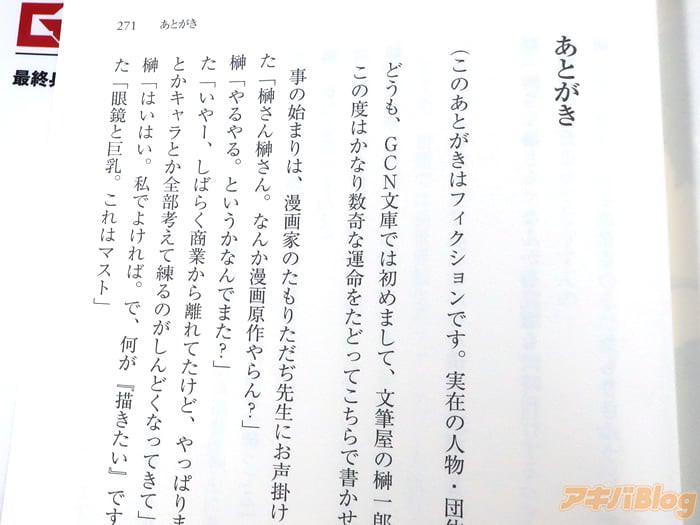 271 あとがき
あとがき
(このあとがきはフィクションです。実在の人物・団体
どうも、GCN文庫では初めまして、文筆屋の榊一郎
この度はかなり数奇な運命をたどってこちらで書かせ
事の始まりは、漫画家のたもりただぢ先生にお声掛け
た「榊さん榊さん。なんか漫画原作やらん？」
榊「やるやる。というかなんでまた？」
た「いやー、しばらく商業から離れてたけど、やっぱりま
とかキャラとか全部考えて練るのがしんどくなってきて」
榊「はいはい。私でよければ。で、何が『描きたい』です
た「眼鏡と巨乳。これはマスト」
最終
アキバBlog